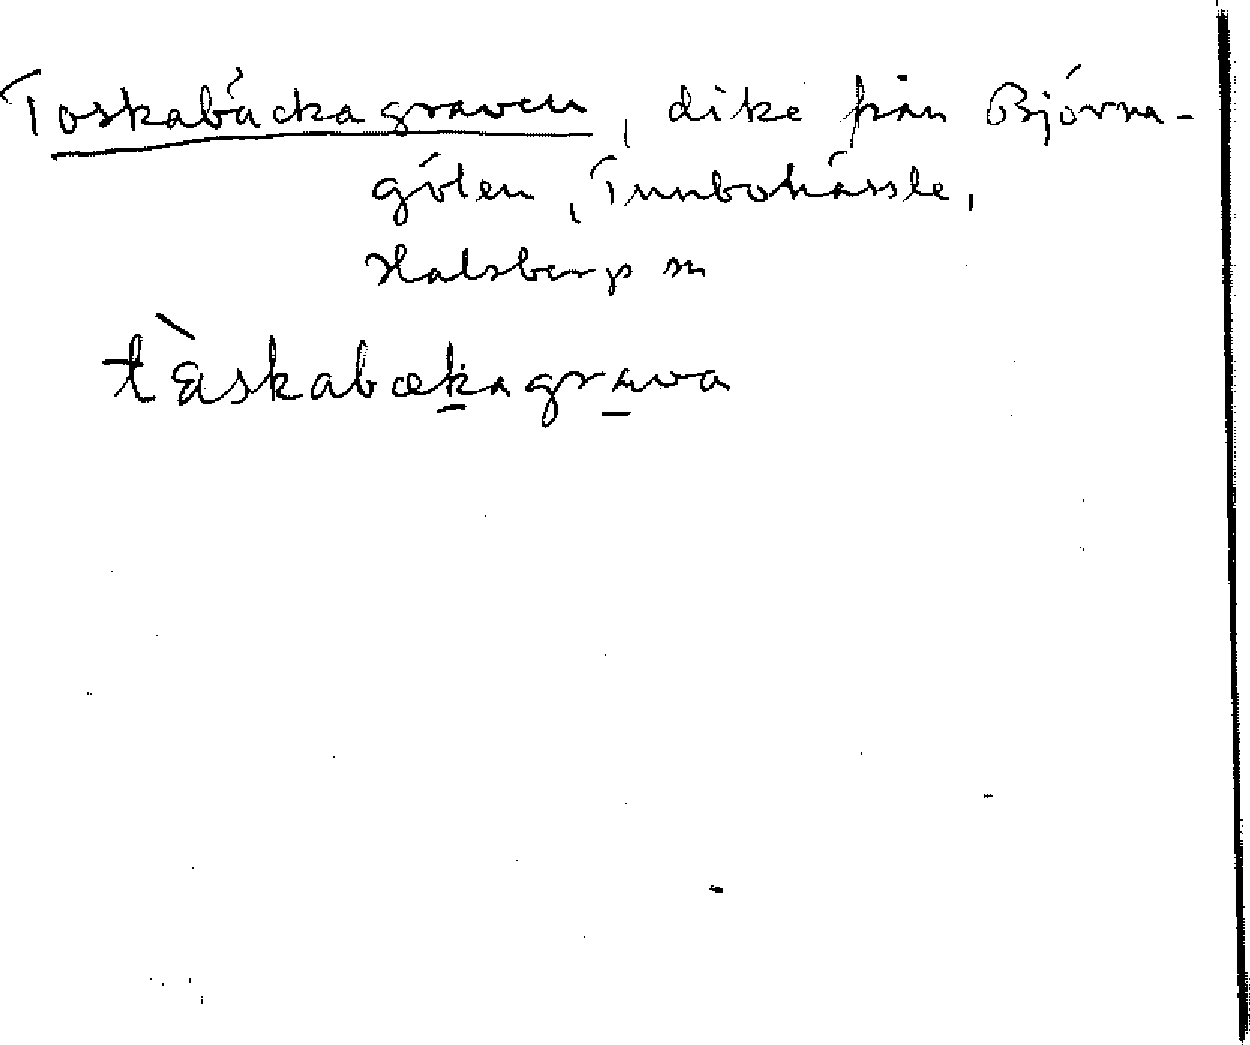 Toskabäckagraven, dike från Björna-
gölen, Tunbohässle,
Halsbergs sn
tàskabækagrava